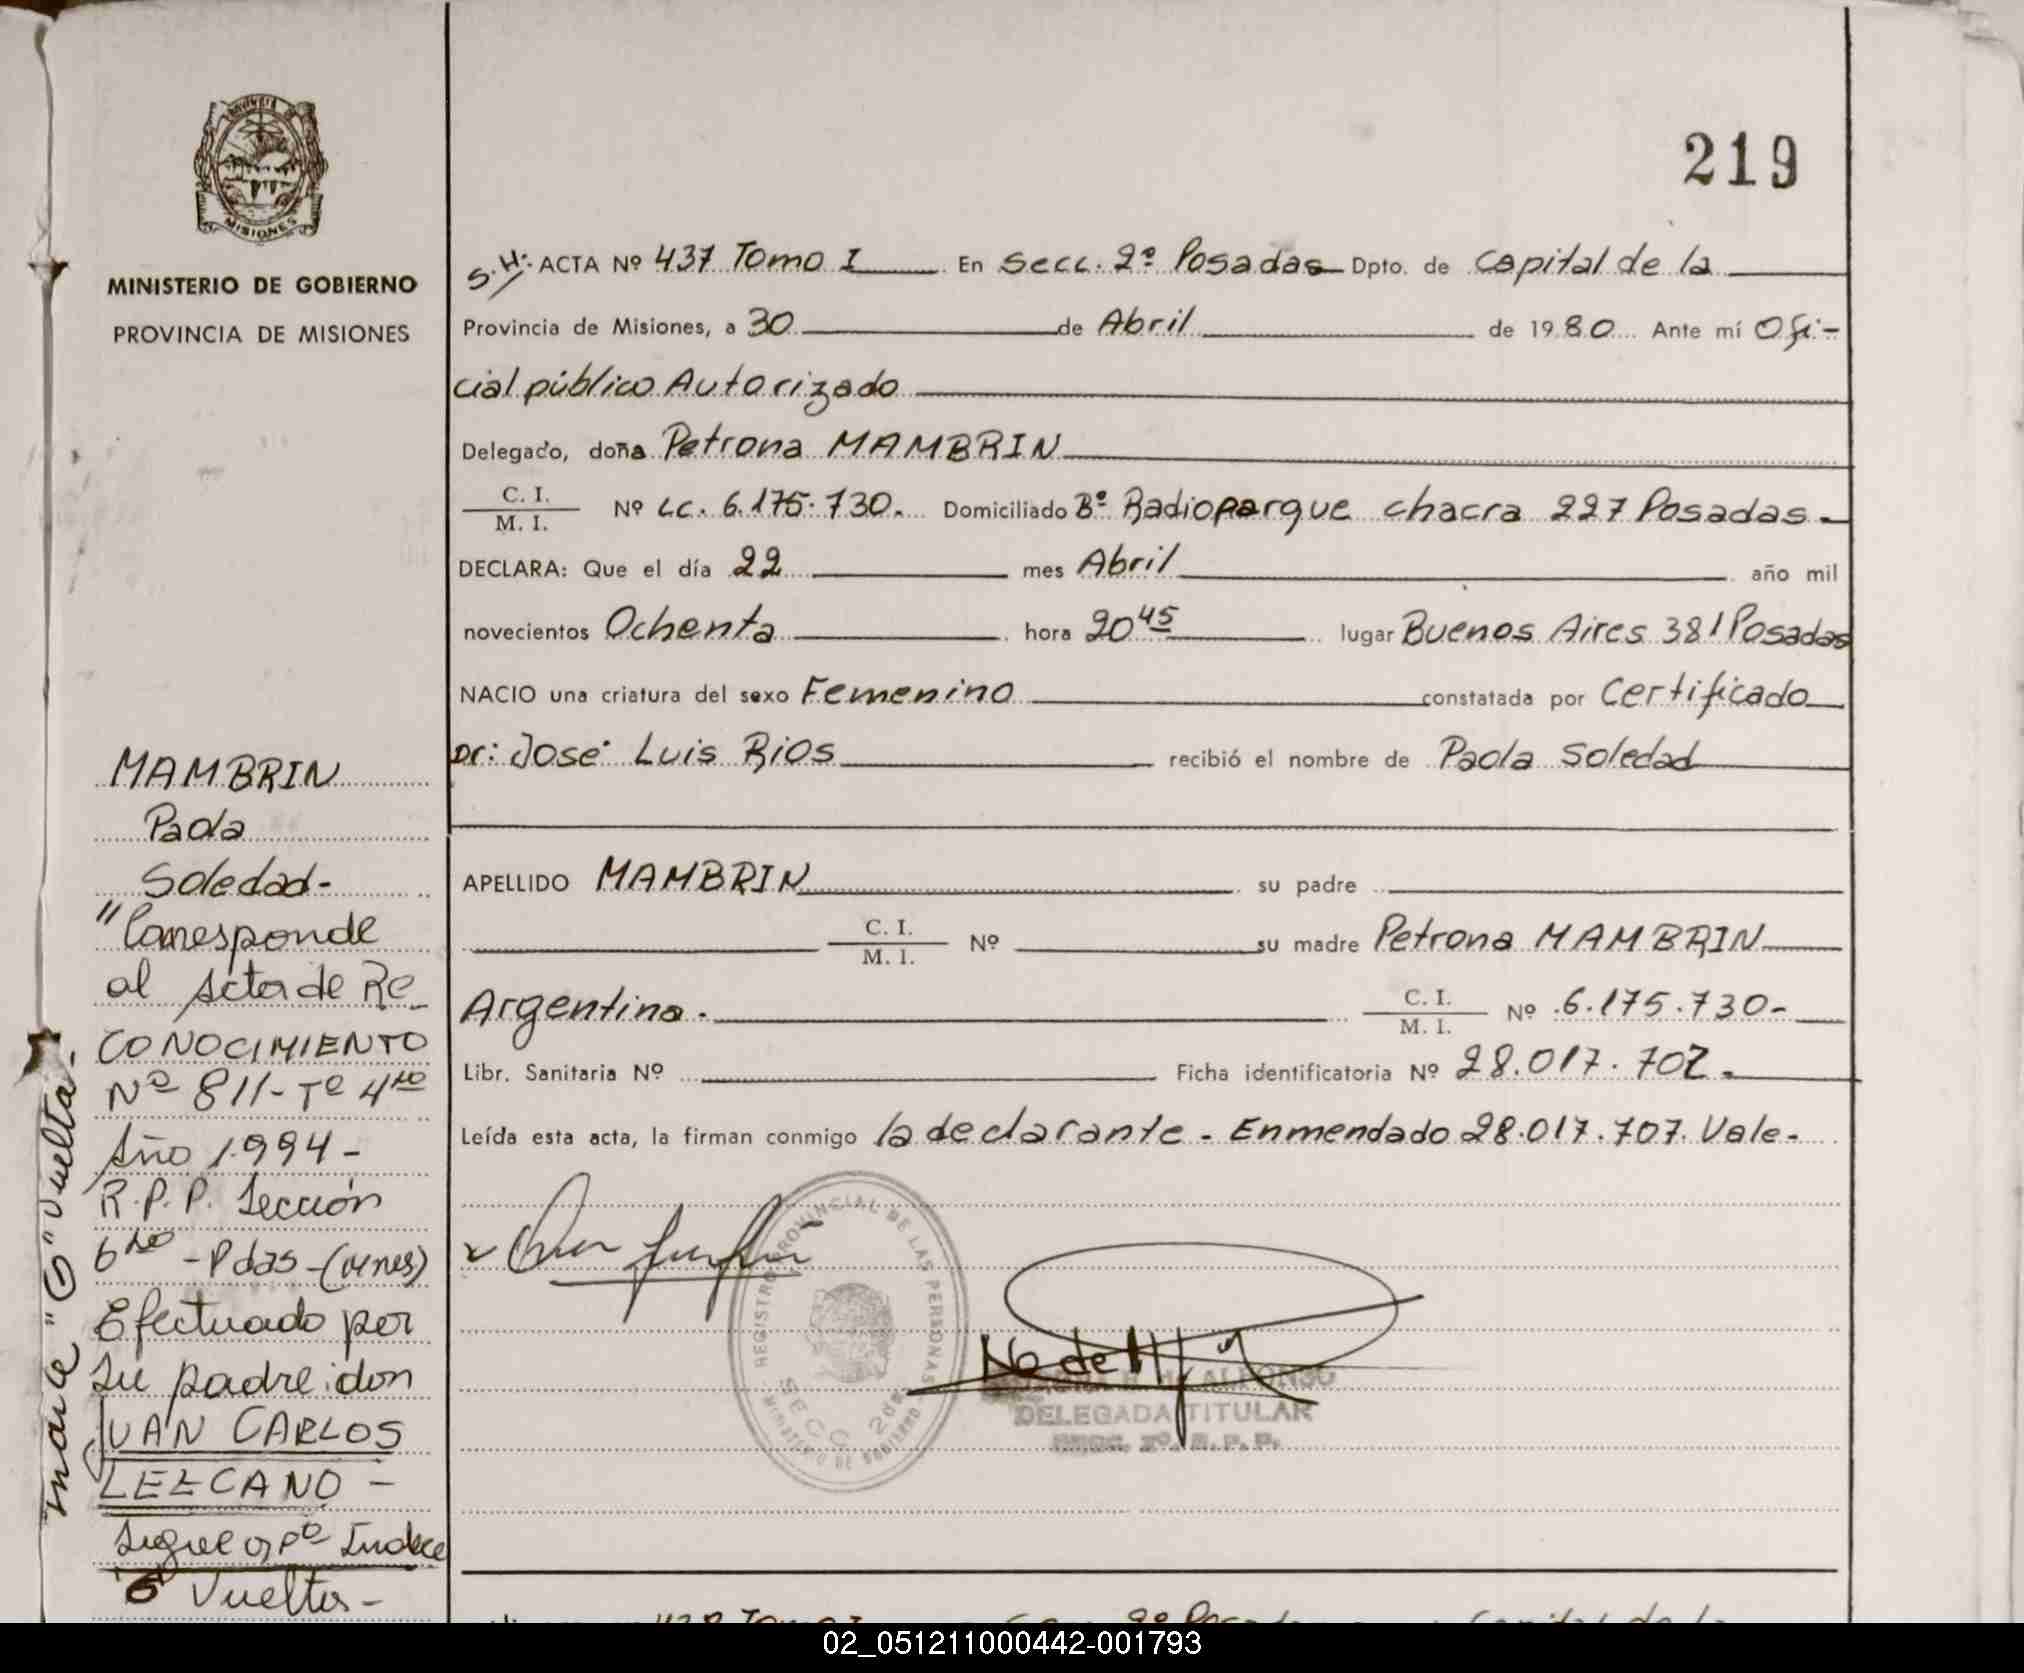 219
MISIONES
MINISTERIO DE GOBIERNO
PROVINCIA DE MISIONES
S.H: ACTA Nº 437 Tomo I En Secc. 2º Posadas Dpto. de Capital de la
Provincia de Misiones, a 30 de Abril de 1980 Ante mí Ofi-
cial público Autorizado
Delegado, doña Petrona MAMBRIN
C. I.
M. I. Nº LC. 6.175.730. Domiciliado Bº Radioparque chacra 227 Posadas.
DECLARA: Que el día 22 mes Abril año mil
novecientos Ochenta hora 20 45 lugar Buenos Aires 381 Posadas
NACIO una criatura del sexo Femenino constatada por Certificado
Dr: José Luis Rios recibió el nombre de Paola Soledad
APELLIDO MAMBRIN su padre
C. I.
M. I. Nº su madre Petrona MAMBRIN
Argentina. C. I.
M. I. Nº 6.175.730-
Libr. Sanitaria Nº Ficha identificatoria Nº 28.017.707.
Leída esta acta, la firman conmigo la declarante - Enmendado 28.017.707. Vale-
REGISTRO PROVINCIAL DE LAS PERSONAS
SECC 2da
MINISTERIO DE GOBIERNO
ALFONSO
DELEGADA TITULAR
SECC. 2º. R. P. P.
MAMBRIN
Paola
Soledad-
"Corresponde
al Acta de Re-
CONOCIMIENTO
Nº 811-Tº 4to
Año 1994-
R.P.P. Sección
6ta -Pdas-(Mnes)
Efectuado por
su padre: don
JUAN CARLOS
LEZCANO -
Sigue Indice
"G" Vuelta-
"G" Vuelta.
437 Tomo I 2º Capital de la
02_051211000442-001793